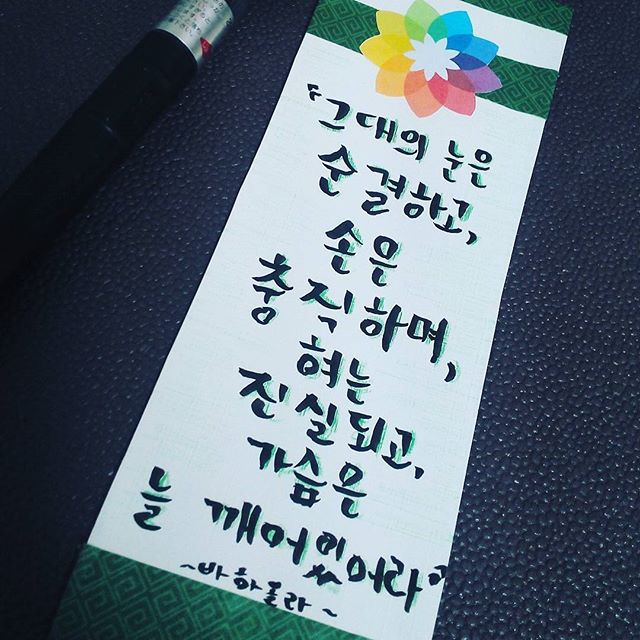 "그대의 눈은
순결하고,
손은
충직하며,
혀는
진실되고,
가슴은
늘 깨어있어라"
~바하올라~